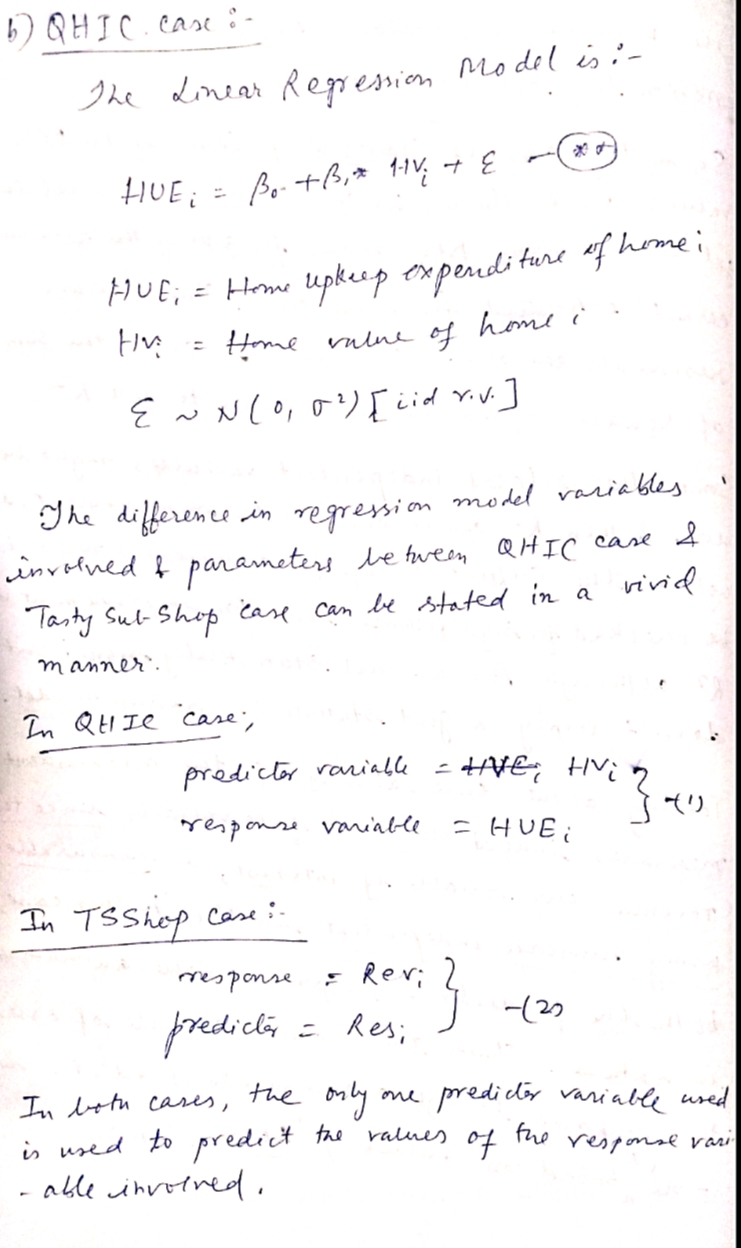 b) QHIC case :-
The Linear Regression Model is :-
HUEi = β0 + β1* HVi + ε — (**)
HUEi = Home upkeep expenditure of home i
HVi = Home value of home i
ε ~ N(0, σ²) [iid r.v.]
The difference in regression model variables
involved & parameters between QHIC case &
Tasty Sub Shop case can be stated in a vivid
manner.
In QHIC case,
predictor variable = HVEi HVi
response variable = HUEi } -(1)
In TSShop case :-
response = Revi
predictor = Resi } -(2)
In both cases, the only one predictor variable used
is used to predict the values of the response vari
- able involved.